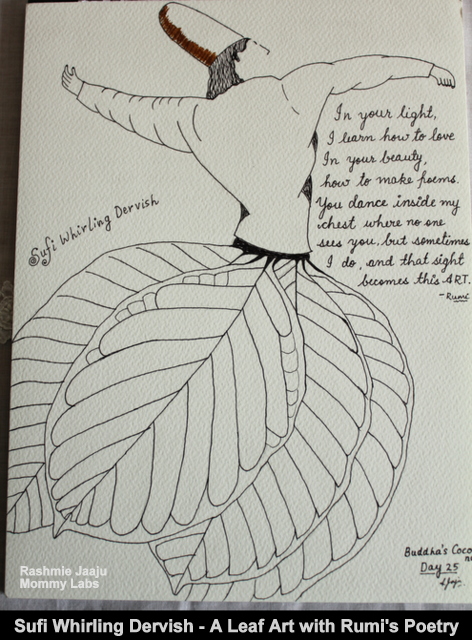 In your light,
I learn how to love
In your beauty,
how to make poems.
You dance inside my
chest where no one
sees you, but sometimes
I do, and that sight
becomes this ART.
-Rumi
Sufi Whirling Dervish
Buddha's
Day 25
Rashmie Jaaju
Mommy Labs
Sufi Whirling Dervish - A Leaf Art with Rumi's Poetry